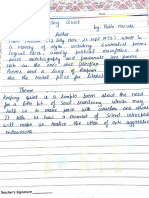 Keeping Quiet
by Pablo Neruda
Author
Pablo Neruda (12 July 1904 - 23 Sept 1973) wrote in
a variety of styles, including surrealist poems
historical epics, overtly political manifestos, a
prose autobiography and passionate love poems
such as the ones in his collection Twenty Love
Poems and a Song of Despair.
the nobel prize for literature
Theme
Keeping Quiet is a simple poem about the need
for a little bit of soul searching, which may
help us to make peace with ourselves and others.
It tells us how a moment of silent introspection
will make us realise the utter of our aggressive
endeavours.
Teacher's Signature